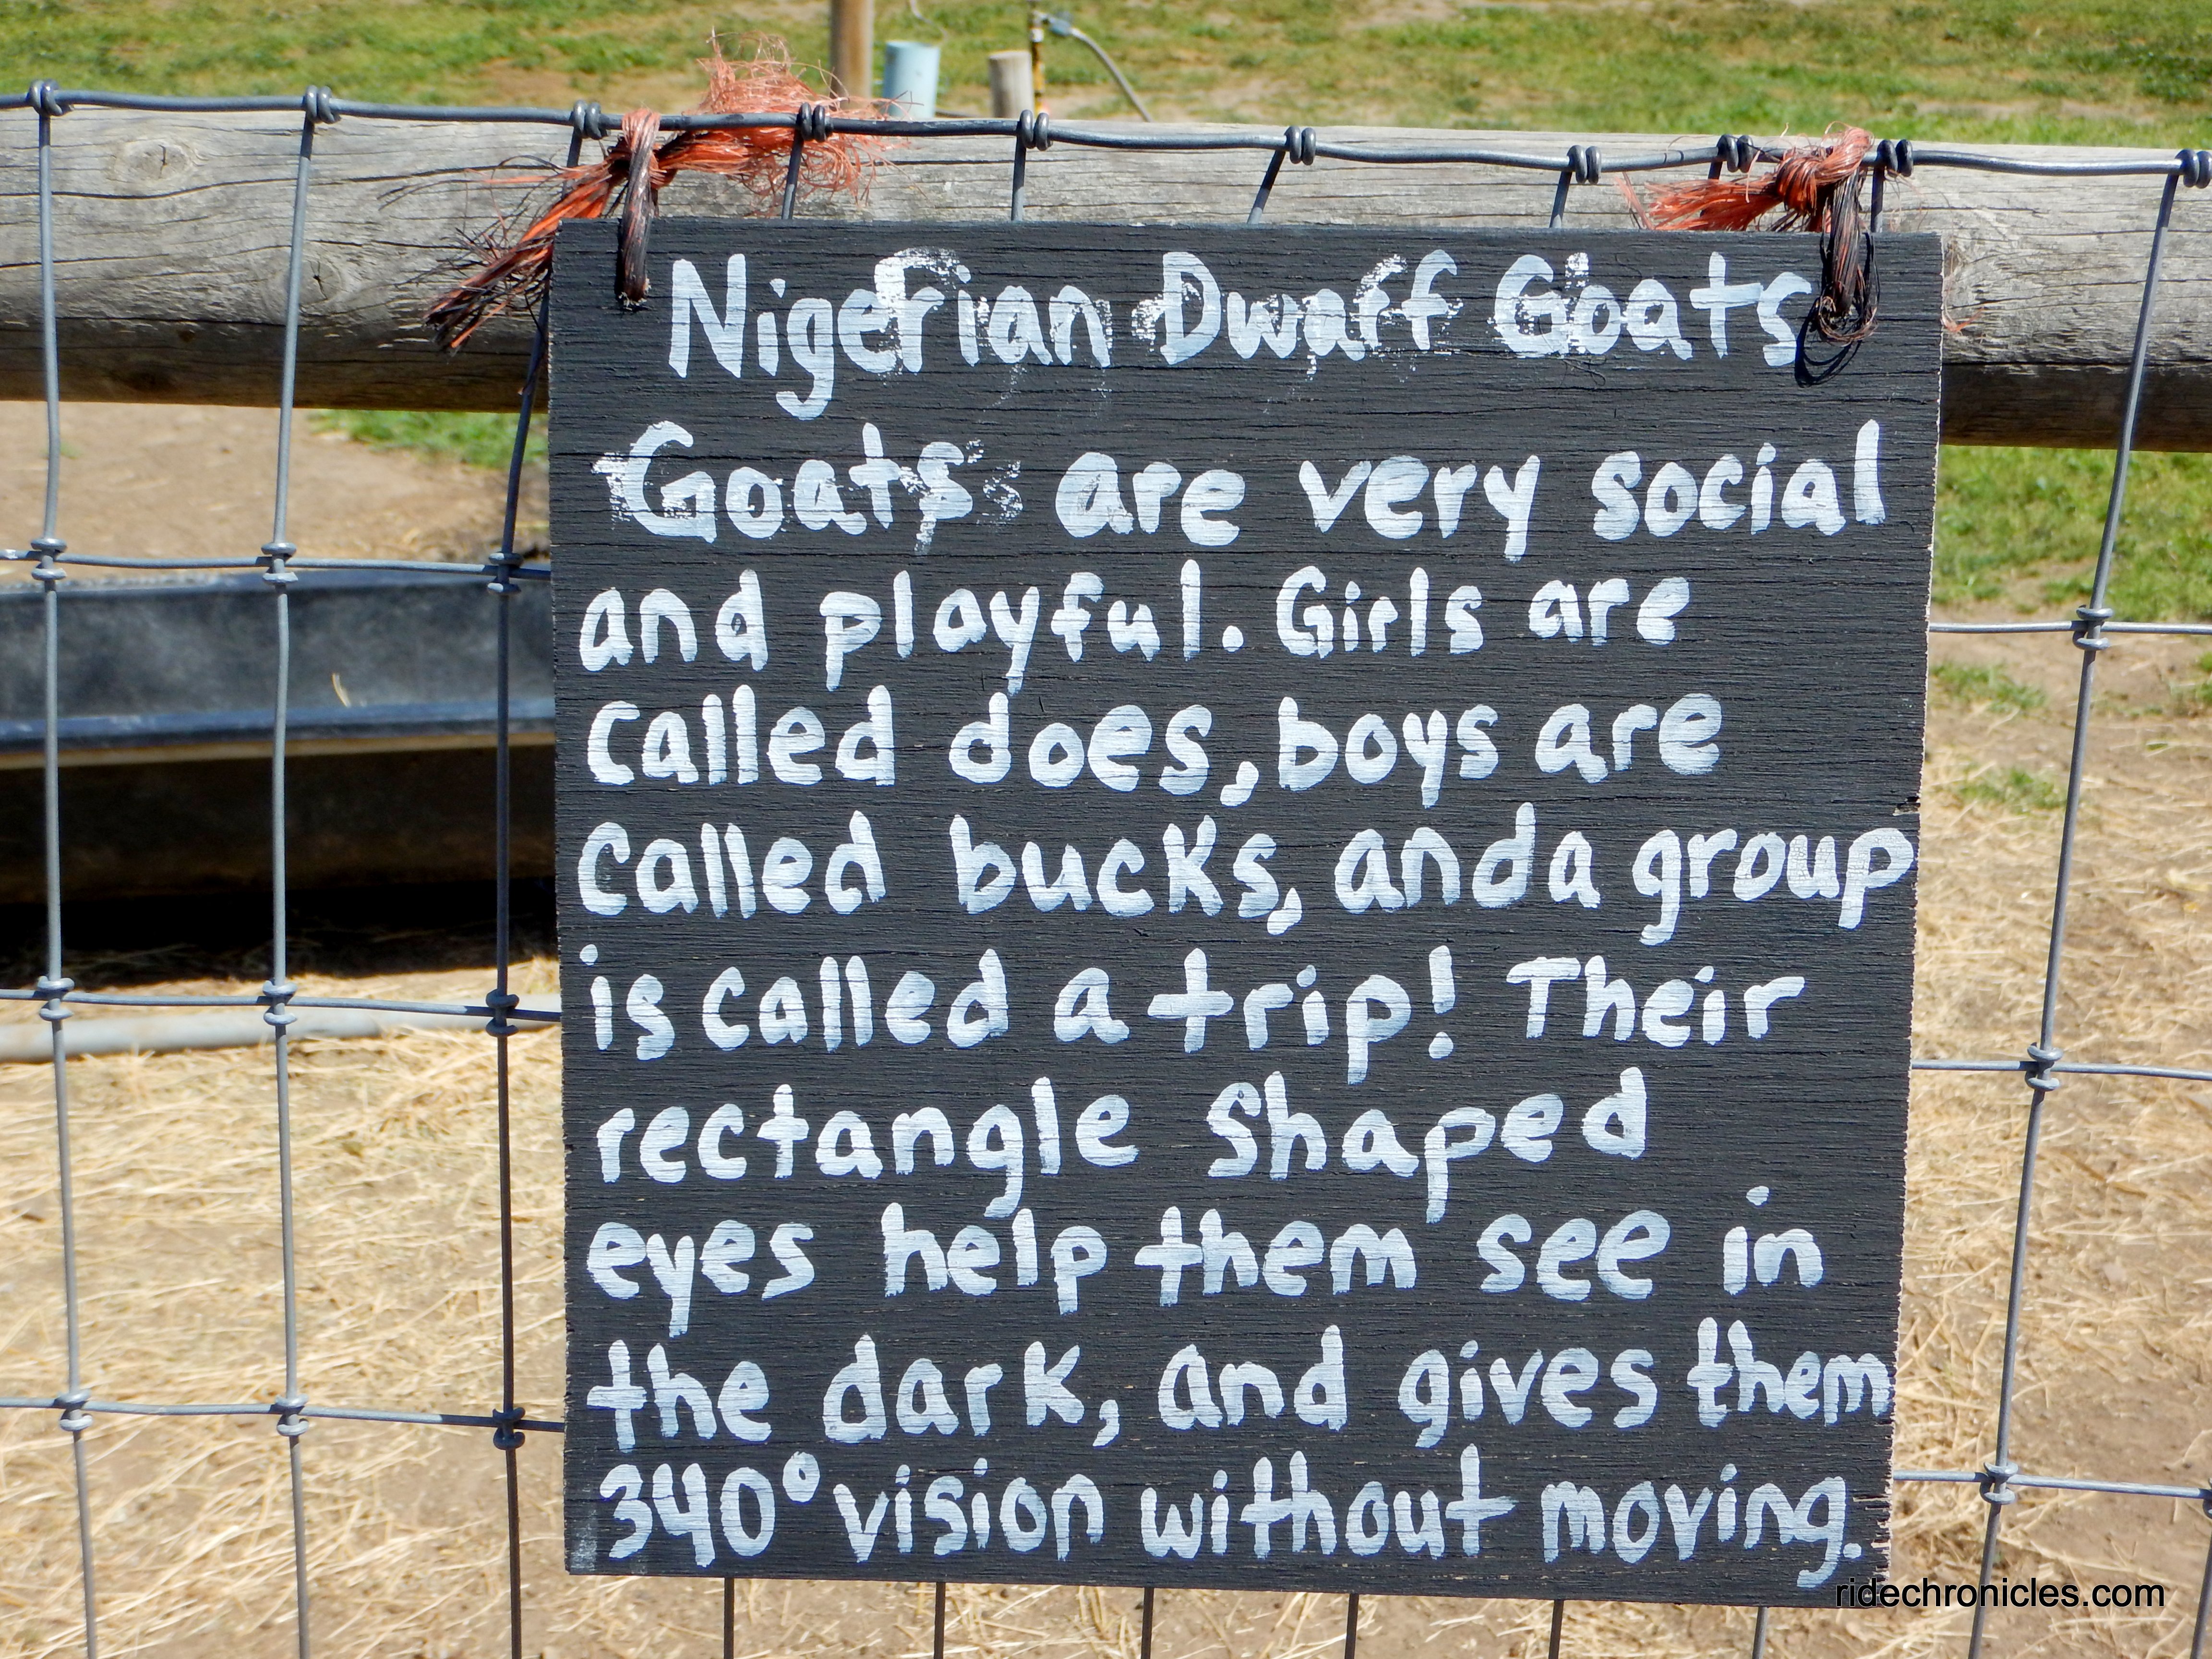 Nigerian Dwarf Goats
Goats are very social
and playful. Girls are
called does, boys are
called bucks, and a group
is called a trip! Their
rectangle shaped
eyes help them see in
the dark, and gives them
340° vision without moving.
ridechronicles.com